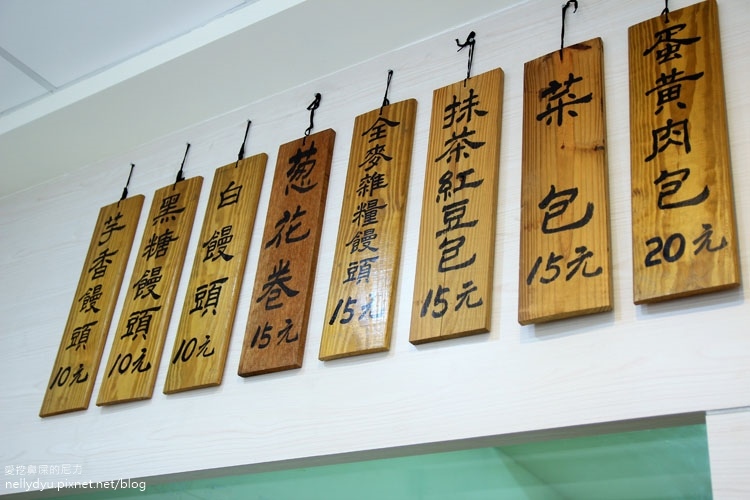 蛋黃肉包
20元
菜包
15元
抹茶紅豆包
15元
全麥雜糧饅頭
15元
葱花卷
15元
白饅頭
10元
黑糖饅頭
10元
芋香饅頭
10元
愛挖鼻屎的尼力
nellydyu.pixnet.net/blog